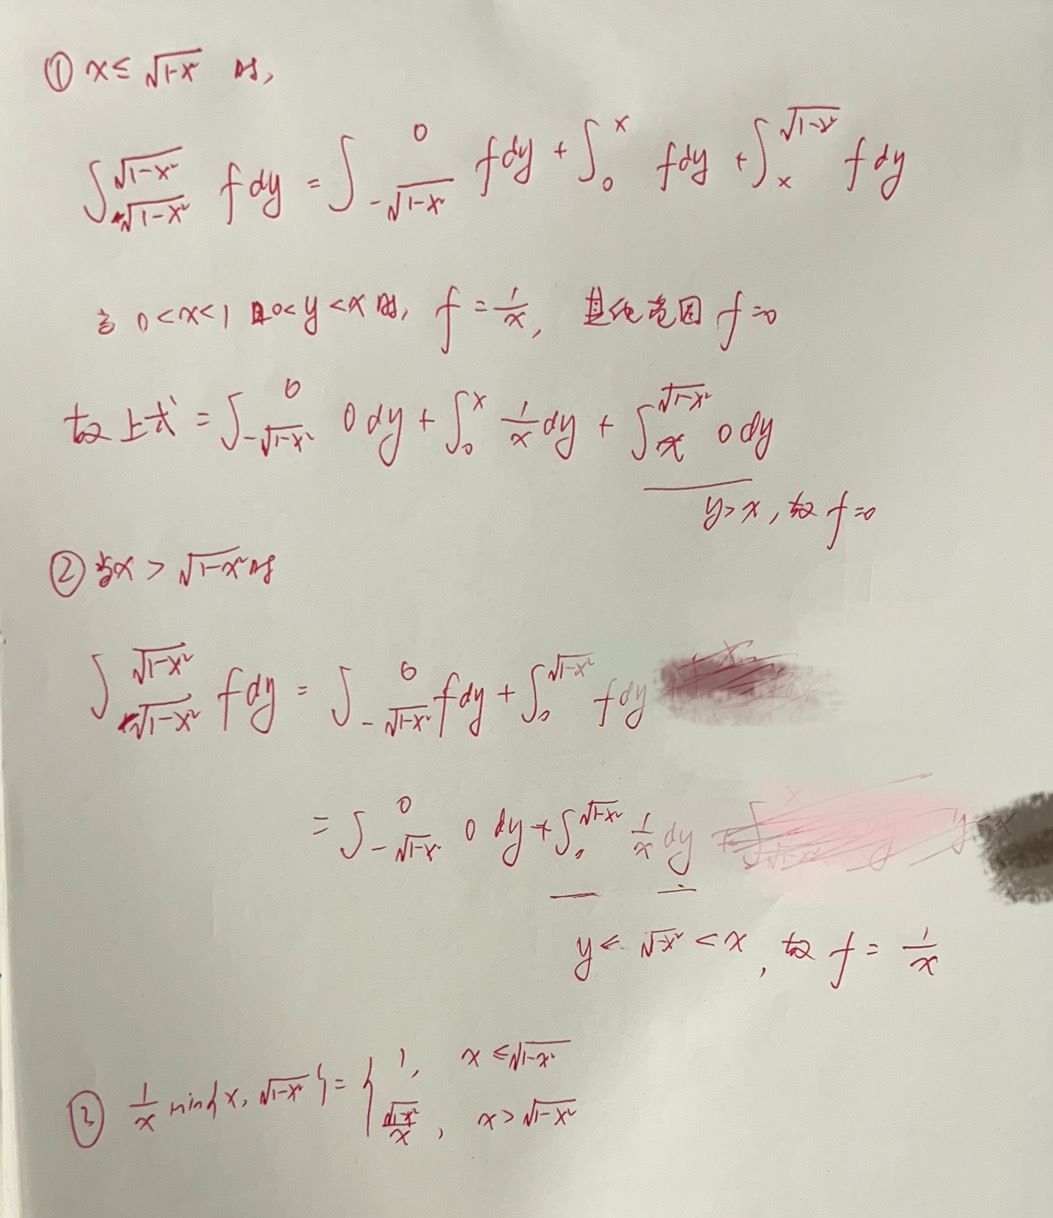 ① x ≤ √1-x² 时,
∫_{-√1-x²}^{√1-x²} f dy = ∫_{-√1-x²}^{0} f dy + ∫_0^x f dy + ∫_x^{√1-x²} f dy
当 0<x<1 且 0<y<x 时, f = 1/x, 其他范围 f=0
故上式 = ∫_{-√1-x²}^{0} 0 dy + ∫_0^x 1/x dy + ∫_x^{√1-x²} 0 dy
y>x, 故 f=0
② 当x > √1-x² 时
∫_{-√1-x²}^{√1-x²} f dy = ∫_{-√1-x²}^{0} f dy + ∫_0^{√1-x²} f dy
= ∫_{-√1-x²}^{0} 0 dy + ∫_0^{√1-x²} 1/x dy
y < √1-x² < x, 故 f = 1/x
③ 1/x min{x, √1-x²} = { 1, x ≤ √1-x²
√1-x²/x, x > √1-x²